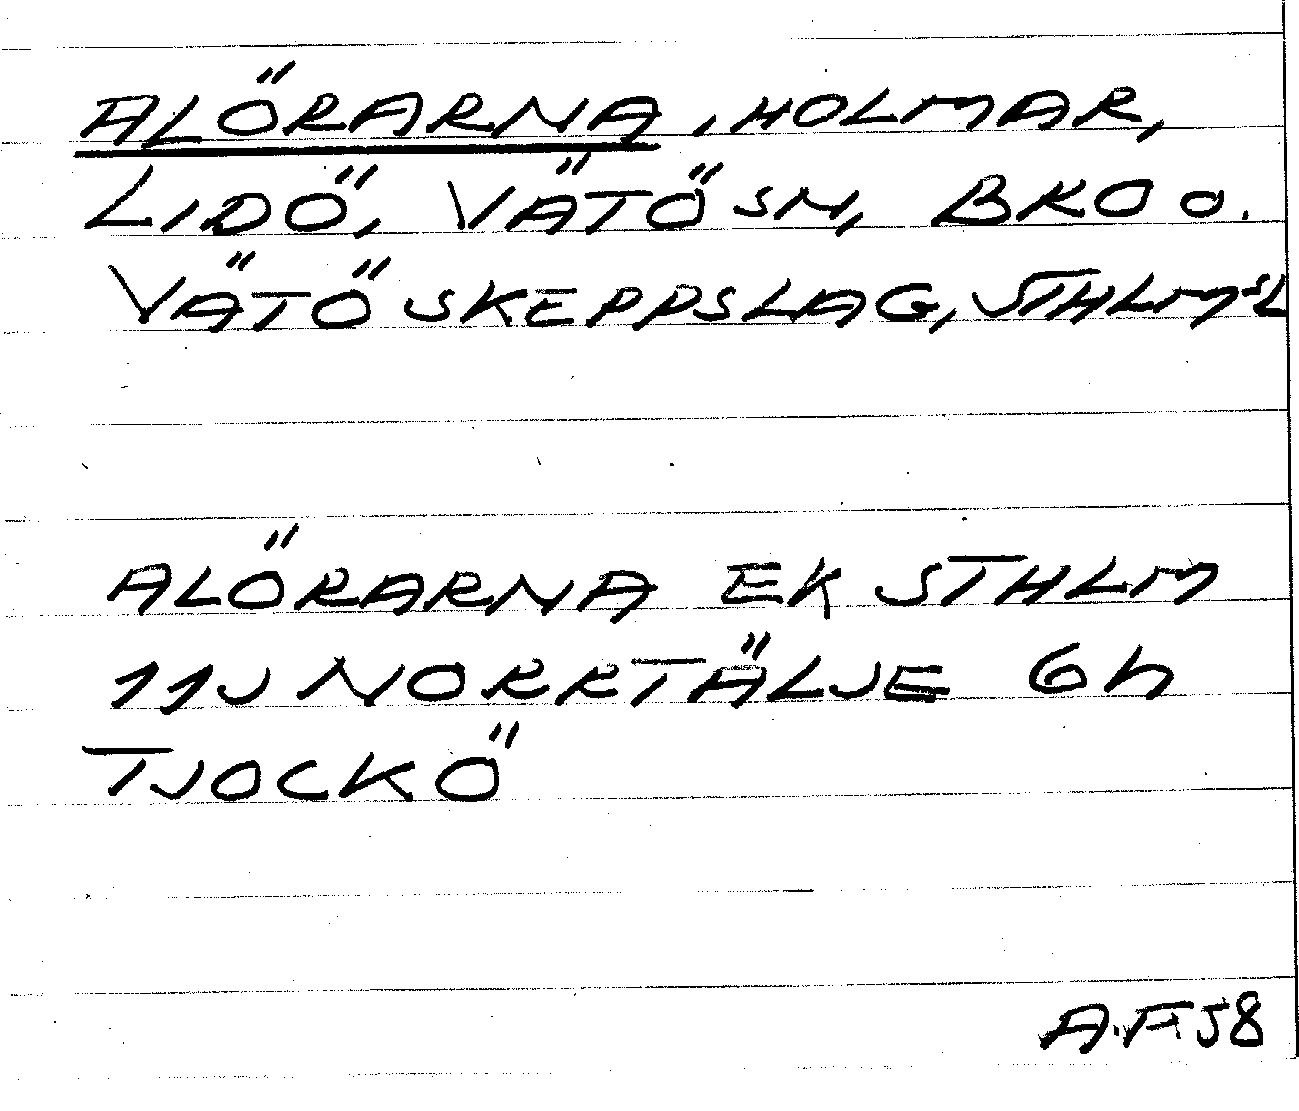 ALÖRARNA, HOLMAR,
LIDÖ, VÄTÖ SN, BRO O.
VÄTÖ SKEPPSLAG, STHLMSL
ALÖRARNA EK STHLM
11J NORRTÄLJE 6h
TJOCKÖ
A.F 58